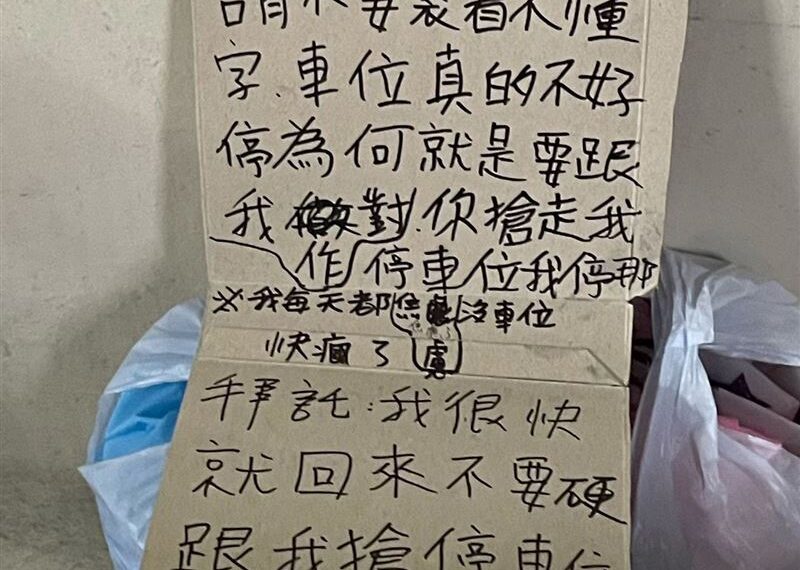 請不要裝看不懂
字.車位真的不好
停為何就是要跟
我作對.你搶走我
停車位我停那
※我每天都焦慮沒車位
快瘋了
拜託:我很快
就回來不要硬
跟我搶停車位